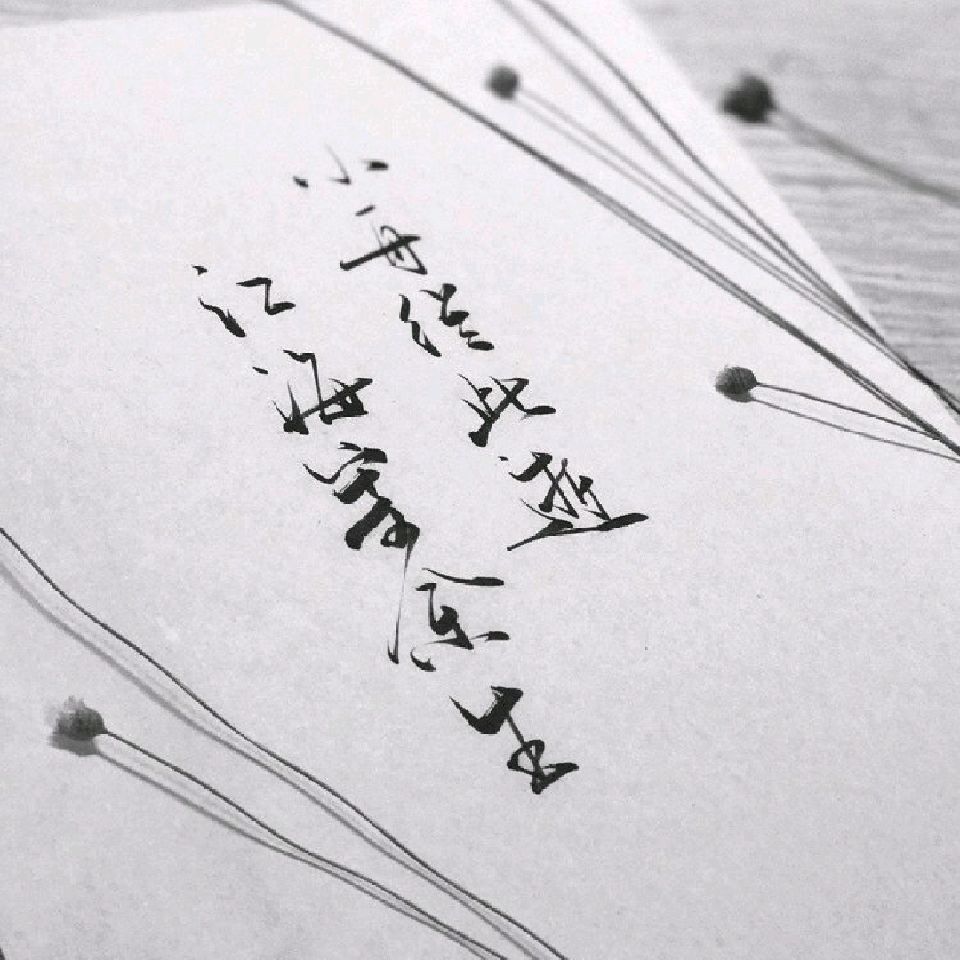 小舟從此逝
江海寄余生